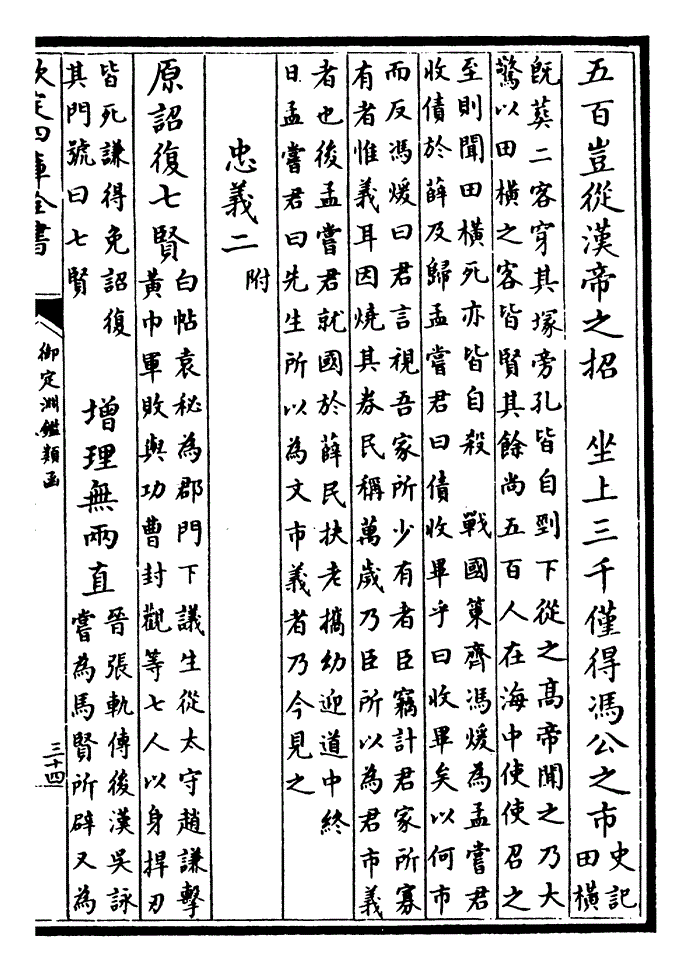 五百豈從漢帝之招　坐上三千僅得馮公之市 史記
田橫
旣葬二客穿其塚旁孔皆自剄下從之髙帝聞之乃大
驚以田橫之客皆賢其餘尚五百人在海中使使召之
至則聞田橫死亦皆自殺　戰國策齊馮煖為孟嘗君
收債於薛及歸孟嘗君曰債收畢乎曰收畢矣以何市
而反馮煖曰君言視吾家所少有者臣竊計君家所寡
有者惟義耳因燒其券民稱萬歲乃臣所以為君市義
者也後孟嘗君就國於薛民扶老攜幼迎道中終
日孟嘗君曰先生所以為文市義者乃今見之
忠義二 附
原詔復七賢 白帖袁秘為郡門下議生從太守趙謙擊
黃巾軍敗與功曹封觀等七人以身捍刃
皆死謙得免詔復
其門號曰七賢
增理無兩直 晉張軌傳後漢吳詠
嘗為馬賢所辟又為
欽定四庫全書
御定淵鑑類函
三十四